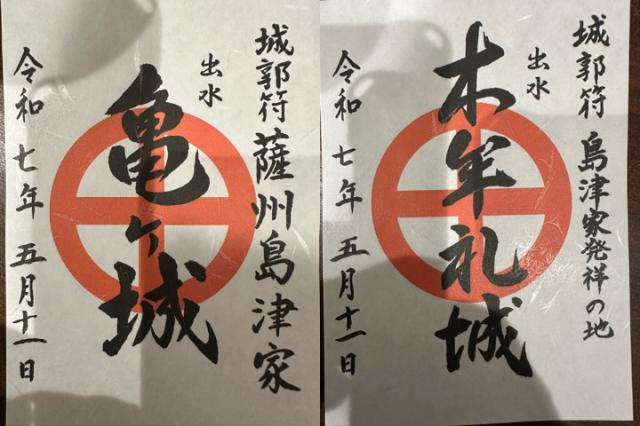 城郭符 薩州島津家
出水
亀ヶ城
令和七年五月十一日
城郭符 島津家発祥の地
出水
木牟礼城
令和七年五月十一日